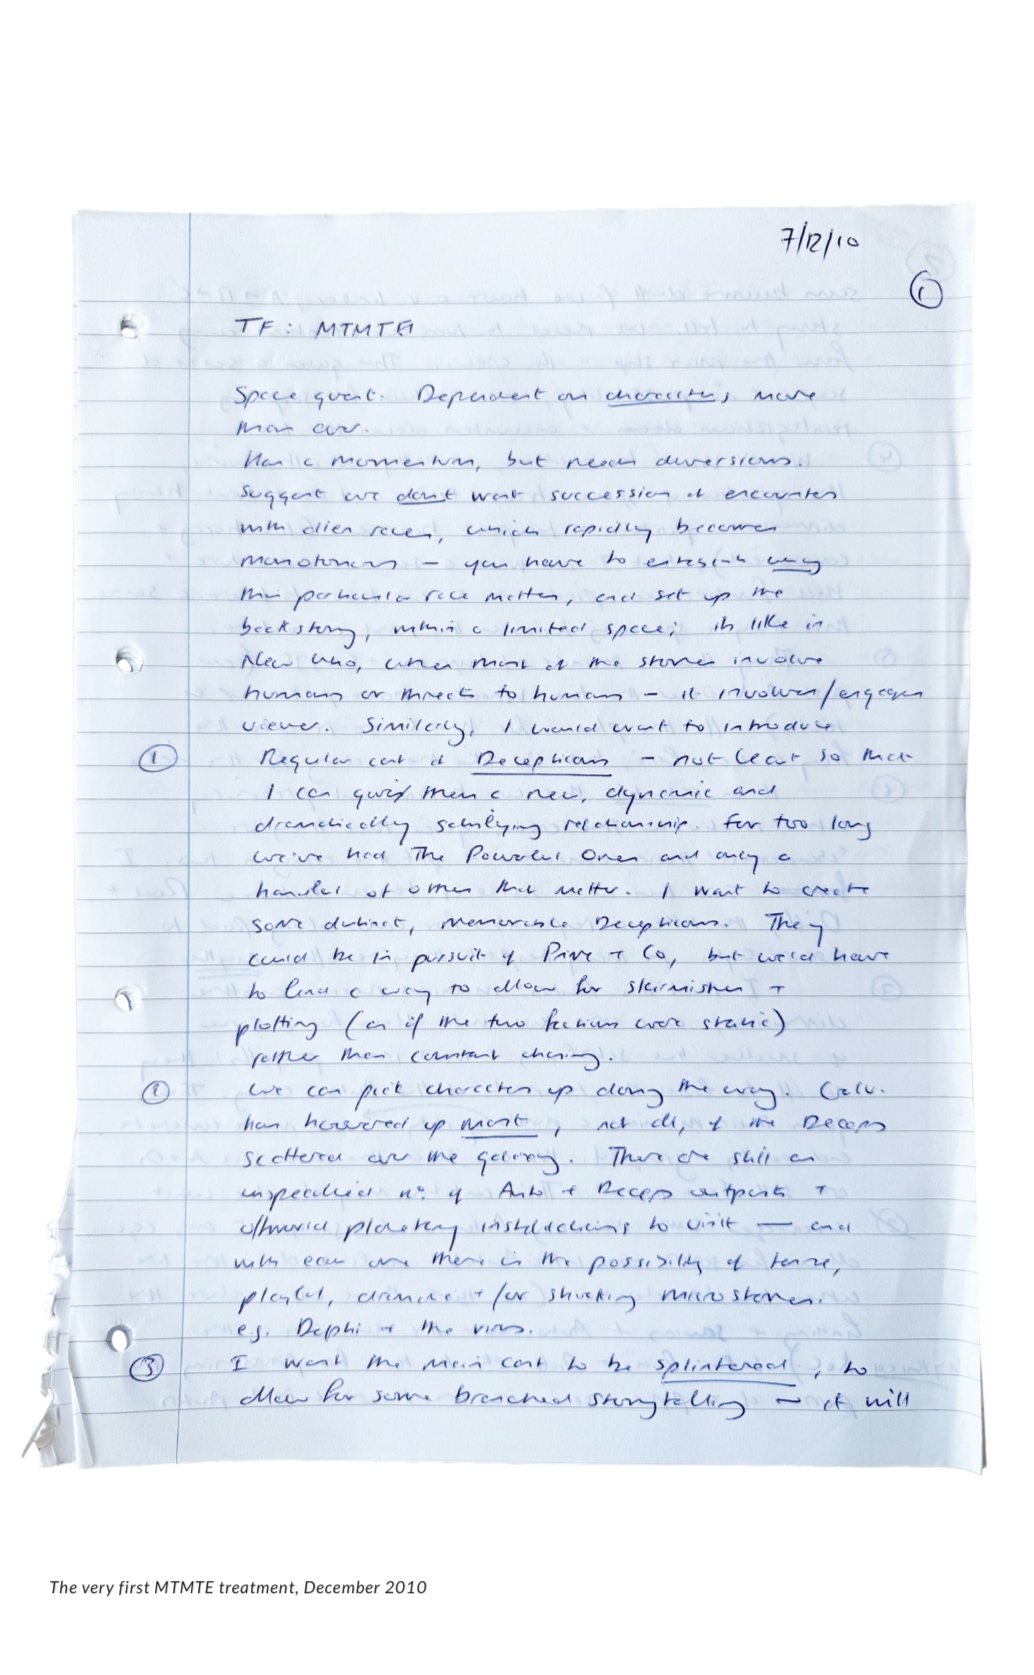 7/12/10
1
TF: MTMTE
Space quest. Dependent on characters, more
than ever.
Has a momentum, but needs diversions.
Suggest we don't want succession of encounters
with alien races, which rapidly becomes
monotonous – you have to establish why
this particular race matters, and set up the
backstory, within a limited space; it's like in
New Who, when most of the stories involve
humans or threats to humans – it involves/engages
viewer. Similarly, I would want to introduce
1 Regular cast of Decepticons – not least so that
I can give them a new, dynamic and
dramatically satisfying relationship. For too long
we've had The Powerful Ones and only a
handful of others that matter. I want to create
some distinct, memorable Decepticons. They
could be in pursuit of Prime + Co, but would have
to find a way to allow for skirmishes +
plotting (as if the two factions were static)
rather than constant chasing.
2 We can pick characters up along the way. Galv.
has hoovered up most, not all, of the Deceps
scattered over the galaxy. There are still an
unspecified no. of Auto + Decep outposts +
planetary installations to visit – and
with each one there is the possibility of tense,
playful, dramatic +/or shocking microstories.
eg. Delphi + the virus.
3 I want the main cast to be splintered, to
allow for some branched storytelling – it will
The very first MTMTE treatment, December 2010